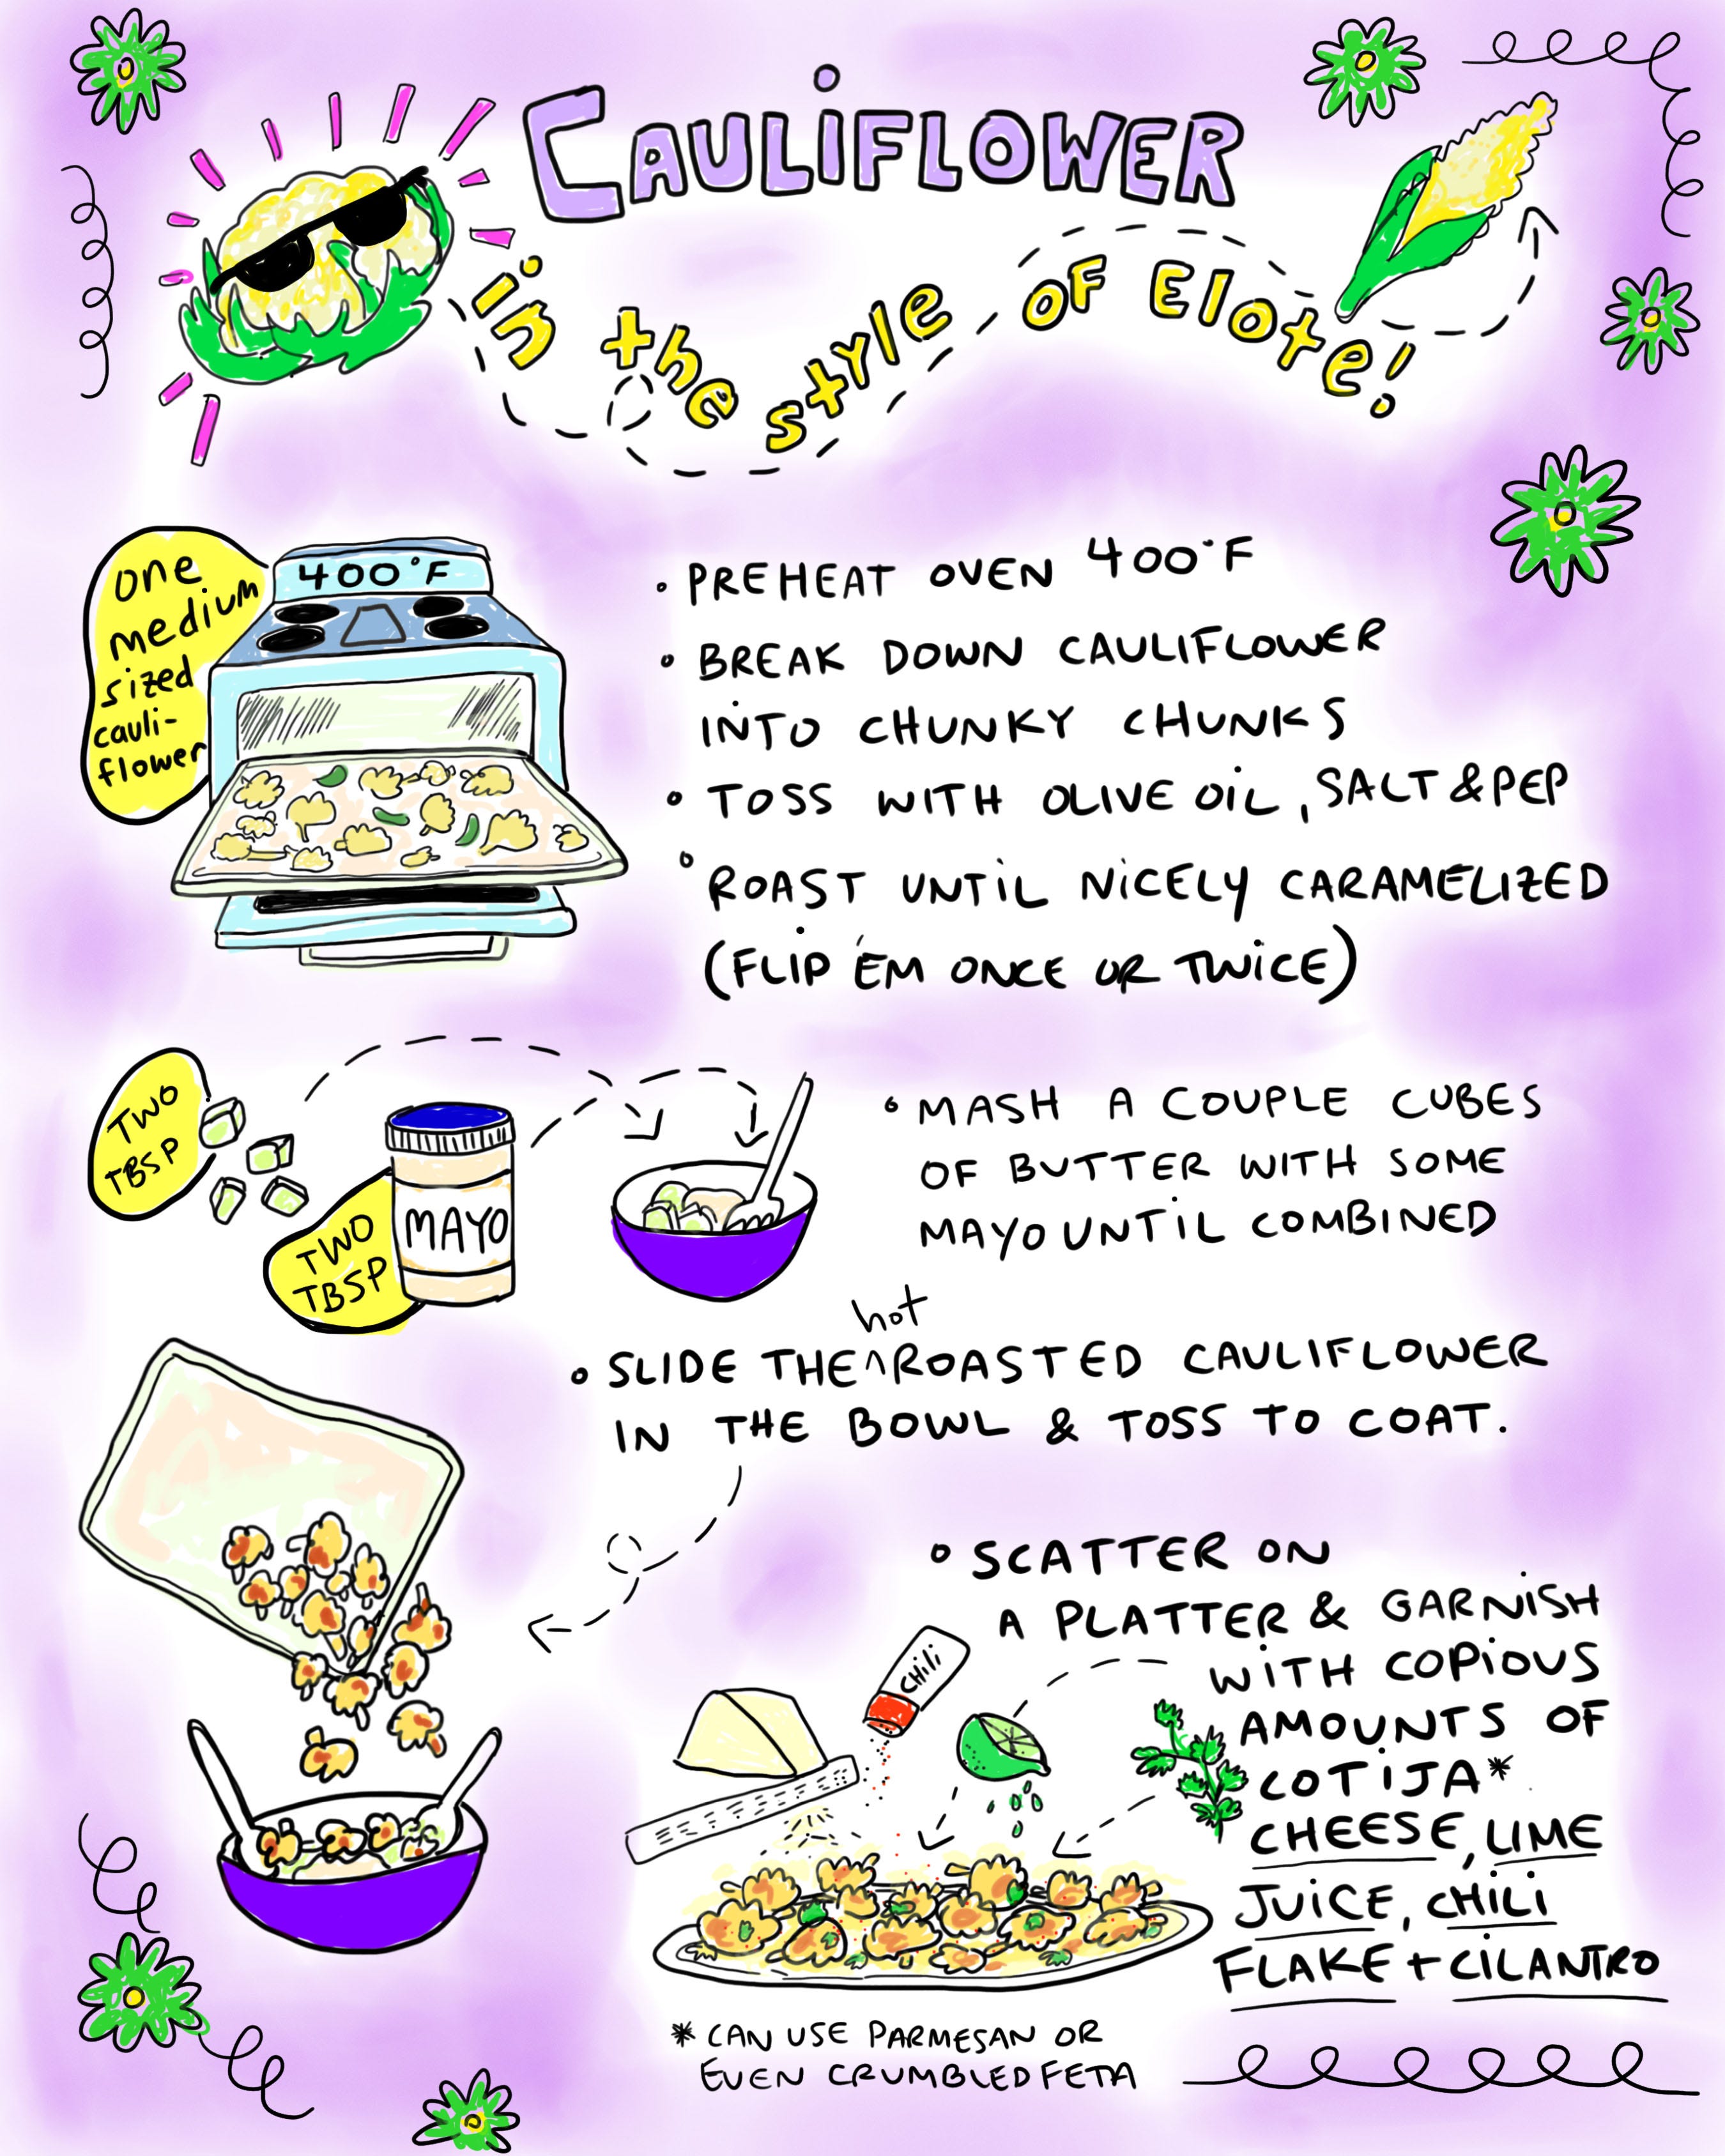 CAULiFLOWER
in the style OF Elote!
one
medium
sized
cauli-
flower
400°F
• PREHEAT OVEN 400°F
• BREAK DOWN CAULIFLOWER
INTO CHUNKY CHUNKS
• TOSS WITH OLIVE OiL, SALT & PEP
• ROAST UNTiL NiCELY CARAMELIZED
(FLiP 'EM ONCE OR TWiCE)
TWO
TBSP
TWO
TBSP
MAYO
• MASH A COUPLE CUBES
OF BUTTER WITH SOME
MAYO UNTiL COMBINED
hot
• SLIDE THE ^ ROASTED CAULIFLOWER
IN THE BOWL & TOSS TO COAT.
• SCATTER ON
A PLATTER & GARNiSH
WiTH COPiOUS
AMOUNTS OF
COTiJA*
CHEESE, LIME
JUiCE, CHiLi
FLAKE + CiLANTRO
CHili
* CAN USE PARMESAN OR
EVEN CRUMBLED FETA